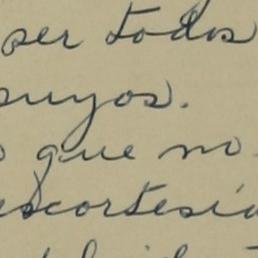 ser todos
suyos.
que no
escortesía